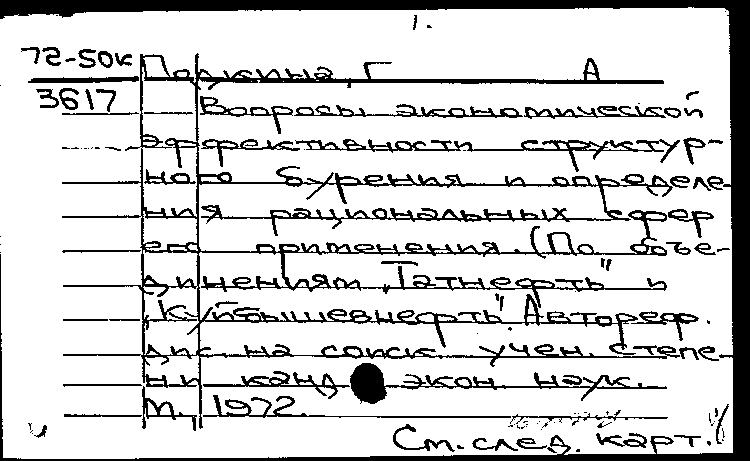 1.
72-50к Подкина, Г А
3617 Вопросы экономической
эффективности структур-
ного бурения и определе-
ния рациональных сфер
его применения. (По объе-
динениям „Татнефть" и
„Куйбышевнефть". Автореф.
дис. на соиск. учен. степе-
ни канд экон. наук.
М., 1972.
См. след. карт.